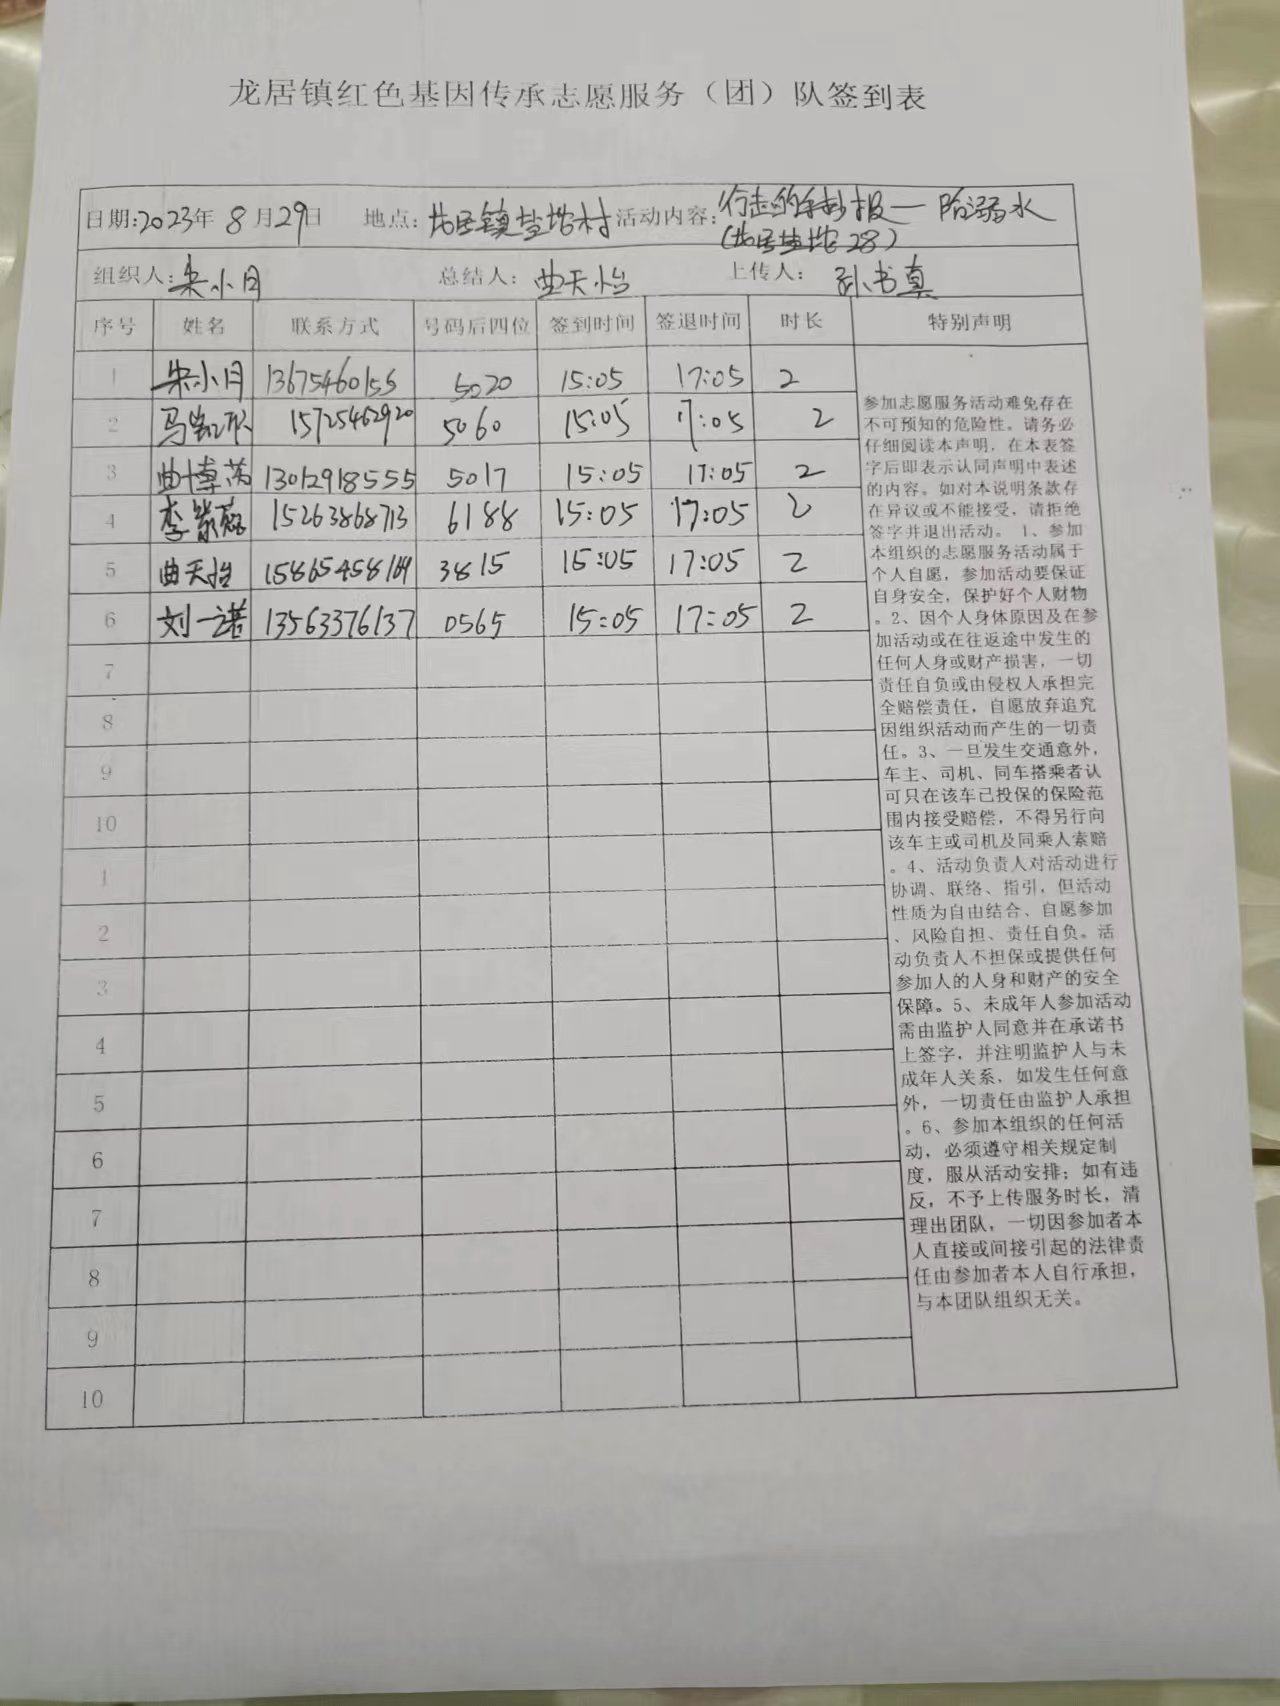 龙居镇红色基因传承志愿服务（团）队签到表
日期:2023年 8月29日 地点: 龙居镇盐垛村 活动内容: 行走的手抄报—防溺水
(龙居盐垛28)
组织人: 朱小月 总结人: 曲天怡 上传人: 孙书真
序号 姓名 联系方式 号码后四位 签到时间 签退时间 时长 特别声明
1 朱小月 13675460155 5020 15:05 17:05 2
2 马 15725462920 5060 15:05 17:05 2
3 曲博芮 13012918555 5017 15:05 17:05 2
4 李紫 15263868713 6188 15:05 17:05 2
5 曲天怡 15865458169 3815 15:05 17:05 2
6 刘一诺 13563376137 0565 15:05 17:05 2
7
8
9
10
1
2
3
4
5
6
7
8
9
10
参加志愿服务活动难免存在
不可预知的危险性。请务必
仔细阅读本声明，在本表签
字后即表示认同声明中表述
的内容。如对本说明条款存
在异议或不能接受，请拒绝
签字并退出活动。 1、参加
本组织的志愿服务活动属于
个人自愿，参加活动要保证
自身安全，保护好个人财物
。2、因个人身体原因及在参
加活动或在往返途中发生的
任何人身或财产损害，一切
责任自负或由侵权人承担完
全赔偿责任，自愿放弃追究
因组织活动而产生的一切责
任。3、一旦发生交通意外，
车主、司机、同车搭乘者认
可只在该车已投保的保险范
围内接受赔偿，不得另行向
该车主或司机及同乘人索赔
。4、活动负责人对活动进行
协调、联络、指引，但活动
性质为自由结合、自愿参加
、风险自担、责任自负。活
动负责人不担保或提供任何
参加人的人身和财产的安全
保障。5、未成年人参加活动
需由监护人同意并在承诺书
上签字，并注明监护人与未
成年人关系，如发生任何意
外，一切责任由监护人承担
。6、参加本组织的任何活
动，必须遵守相关规定制
度，服从活动安排；如有违
反，不予上传服务时长，清
理出团队，一切因参加者本
人直接或间接引起的法律责
任由参加者本人自行承担，
与本团队组织无关。